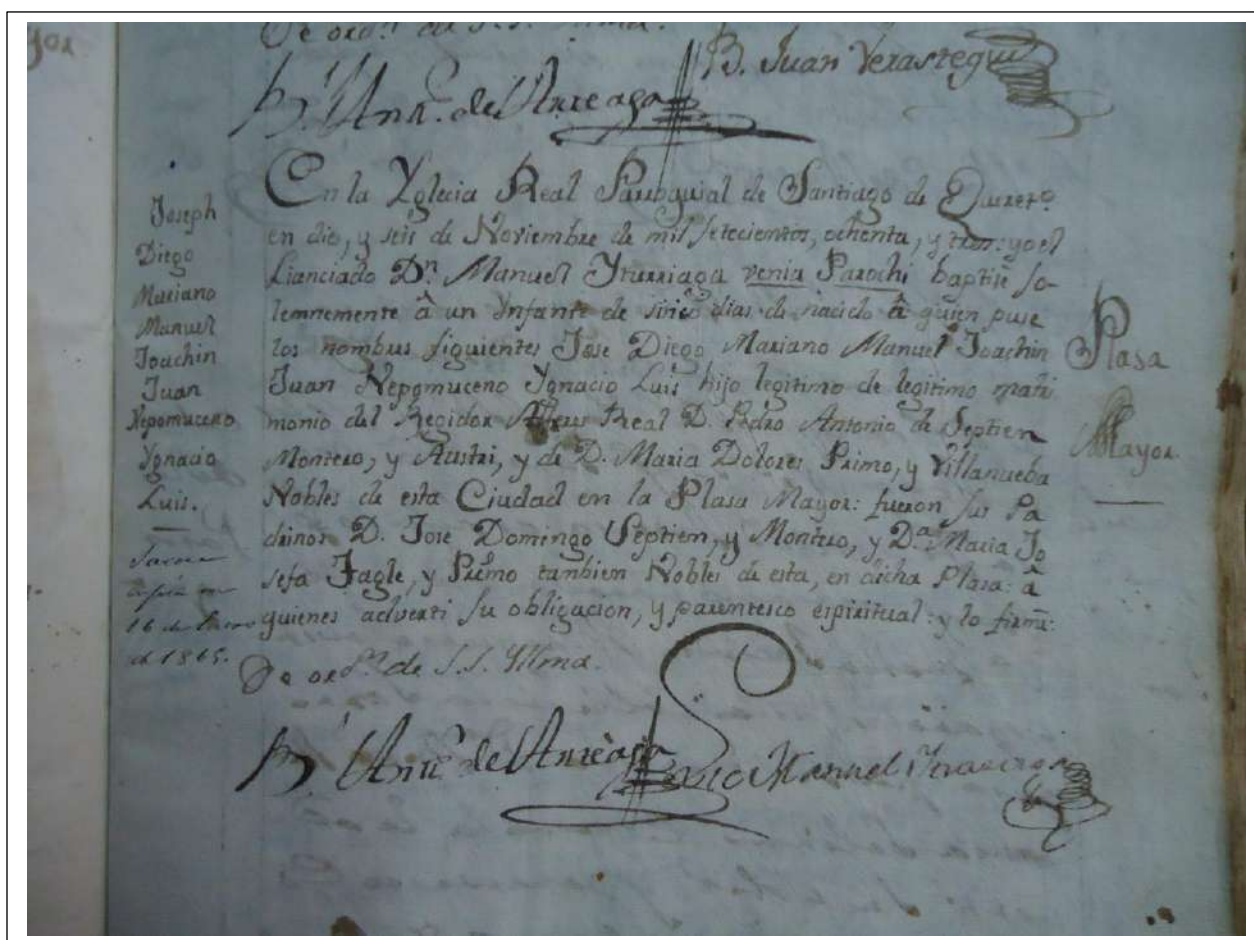 yor
De ord.n de S.S. Yllma.
B. Juan Verastegui
B.r Ann.o de Arreaga
Joseph
Diego
Mariano
Manuel
Joachin
Juan
Nepomuceno
Ygnacio
Luis.
16 de Enero
de 1865.
En la Yglecia Real Parroquial de Santiago de Queret.o
en die, y seis de Noviembre de mil setecientos, ochenta, y tres: yo el
Lianciado D.n Manuel Yturriaga venia Parochi baptise so-
lemnemente â un Ynfante de sinco dias de nacido â quien puse
los nombres siguientes Jose Diego Mariano Manuel Joachin
Juan Nepomuceno Ygnacio Luis hijo legitimo de legitimo matri
monio del Regidor Alferes Real D. Pedro Antonio de Septien
Montero, y Austri, y de D. Maria Dolores Primo, y Villanueba
Nobles de esta Ciudad en la Plasa Mayor: fueron sus Pa
drinos D. Jose Domingo Septien, y Montero, y D.a Maria Jo
sefa Fagle, y Primo tambien Nobles de esta, en dicha Plasa: â
quienes adverti su obligacion, y parentesco espiritual: y lo firmé:
Plasa
Mayor
De ord.n de S.S. Yllma.
B.r Ann.o de Arreaga
Manuel Yturriaga